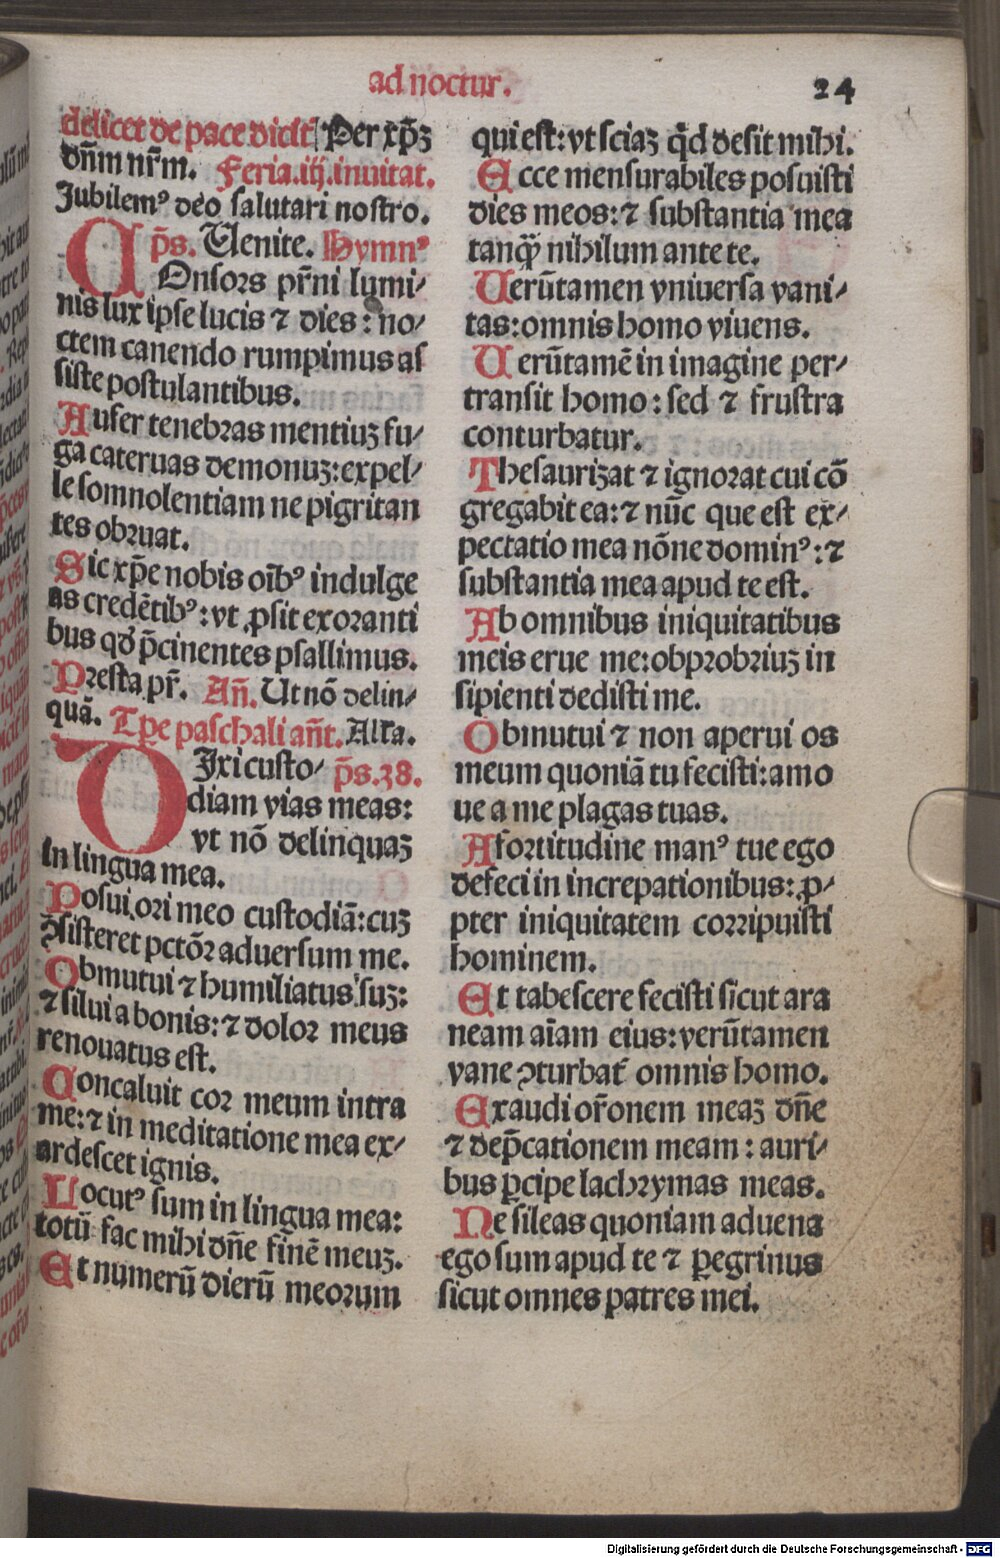 ad noctur.
24
delicet de pace dicit̉ Per xp̄ꝫ
dn̄m nr̄m. Feria.iij.inuitat.
Jubilemꝰ deo salutari nostro.
p̄s. Uenite. Hymnꝰ
COnsors pr̄ni lumi⸗
nis lux ipse lucis ⁊ dies : no⸗
ctem canendo rumpimus as
siste postulantibus.
Aufer tenebras mentiuꝫ fu⸗
ga cateruas demonuꝫ:expel⸗
le somnolentiam ne pigritan
tes obruat.
Sic xp̄e nobis oībꝰ indulge
as credētibꝰ:vt ꝓsit exoranti
bus qd̓ p̄cinentes psallimus.
Presta pr̄. An̄. Ut nō delin⸗
quā. Tꝑe paschali an̄t. Alla.
DJxi custo⸗ p̄s.38.
diam vias meas:
vt nō delinquaꝫ
in lingua mea.
Posui ori meo custodiā:cuꝫ
ꝯsisteret pctōꝛ aduersum me.
Obmutui ⁊ humiliatus suꝫ:
⁊ silui a bonis:⁊ dolor meus
renouatus est.
Concaluit cor meum intra
me:⁊ in meditatione mea ex⸗
ardescet ignis.
Locutꝰ sum in lingua mea:
totū fac mihi dn̄e finē meuꝫ.
Et numerū dierū meorum
qui est:vt sciaꝫ qd̄ desit mihi.
Ecce mensurabiles posuisti
dies meos:⁊ substantia mea
tanqꝫ̄ nihilum ante te.
Uerūtamen vniuersa vani⸗
tas:omnis homo viuens.
Uerūtamē in imagine per⸗
transit homo : sed ⁊ frustra
conturbatur.
Thesaurizat ⁊ ignorat cui cō
gregabit ea:⁊ nūc que est ex⸗
pectatio mea nōne dominꝰ:⁊
substantia mea apud te est.
Ab omnibus iniquitatibus
meis erue me:obprobriuꝫ in
sipienti dedisti me.
Obmutui ⁊ non aperui os
meum quoniā tu fecisti:amo
ue a me plagas tuas.
A fortitudine manꝰ tue ego
defeci in increpationibus:ꝓ⸗
pter iniquitatem corripuisti
hominem.
Et tabescere fecisti sicut ara
neam aīam eius:verūtamen
vane ꝯturbat̉ omnis homo.
Exaudi or̄onem meaꝫ dn̄e
⁊ dep̄cationem meam : auri⸗
bus ꝑcipe lachrymas meas.
Ne sileas quoniam aduena
ego sum apud te ⁊ ꝑegrinus
sicut omnes patres mei.
Digitalisierung gefördert durch die Deutsche Forschungsgemeinschaft - DFG